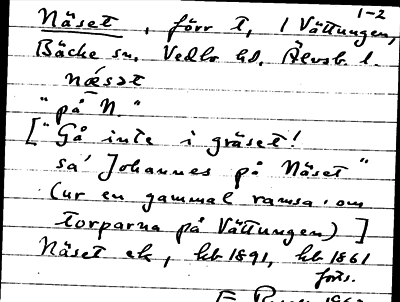 1-2
Näset, förr t, / Vättungen,
Bäcke sn. Vedbo hd. Älvsb. l.
nǽsət
"på N."
["Gå inte i gräset!
sa' Johannes på Näset"
(ur en gammal ramsa om
torparna på Vättungen)]
Näset ek, hb 1891, hb 1861
forts.